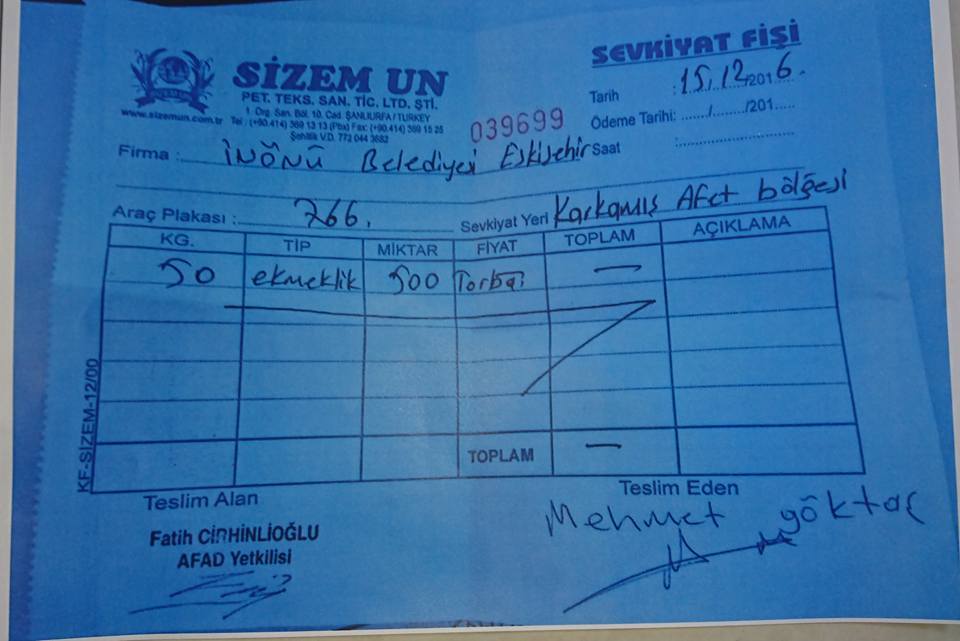 SEVKİYAT FİŞİ
SİZEM UN
PET. TEKS. SAN. TİC. LTD. ŞTİ.
1 Org. San. Böl. 10. Cad. ŞANLIURFA/TURKEY
www.sizemun.com.tr Tel : (+90.414) 369 13 13 (Pbx) Fax: (+90.414) 369 15 25
Şehitlik V.D. 772 044 3682
039699
Tarih : 15.12.2016.
Ödeme Tarihi: ....../......./201.....
Saat :
Firma : İNÖNÜ Belediyesi Eskişehir
Araç Plakası : 766. Sevkiyat Yeri Karkamış Afet bölgesi
KG. TİP MİKTAR FİYAT TOPLAM AÇIKLAMA
50 ekmeklik 500 Torba —
TOPLAM —
KF-SİZEM-12/00
Teslim Alan Teslim Eden
Fatih CİRHİNLİOĞLU Mehmet göktaş
AFAD Yetkilisi